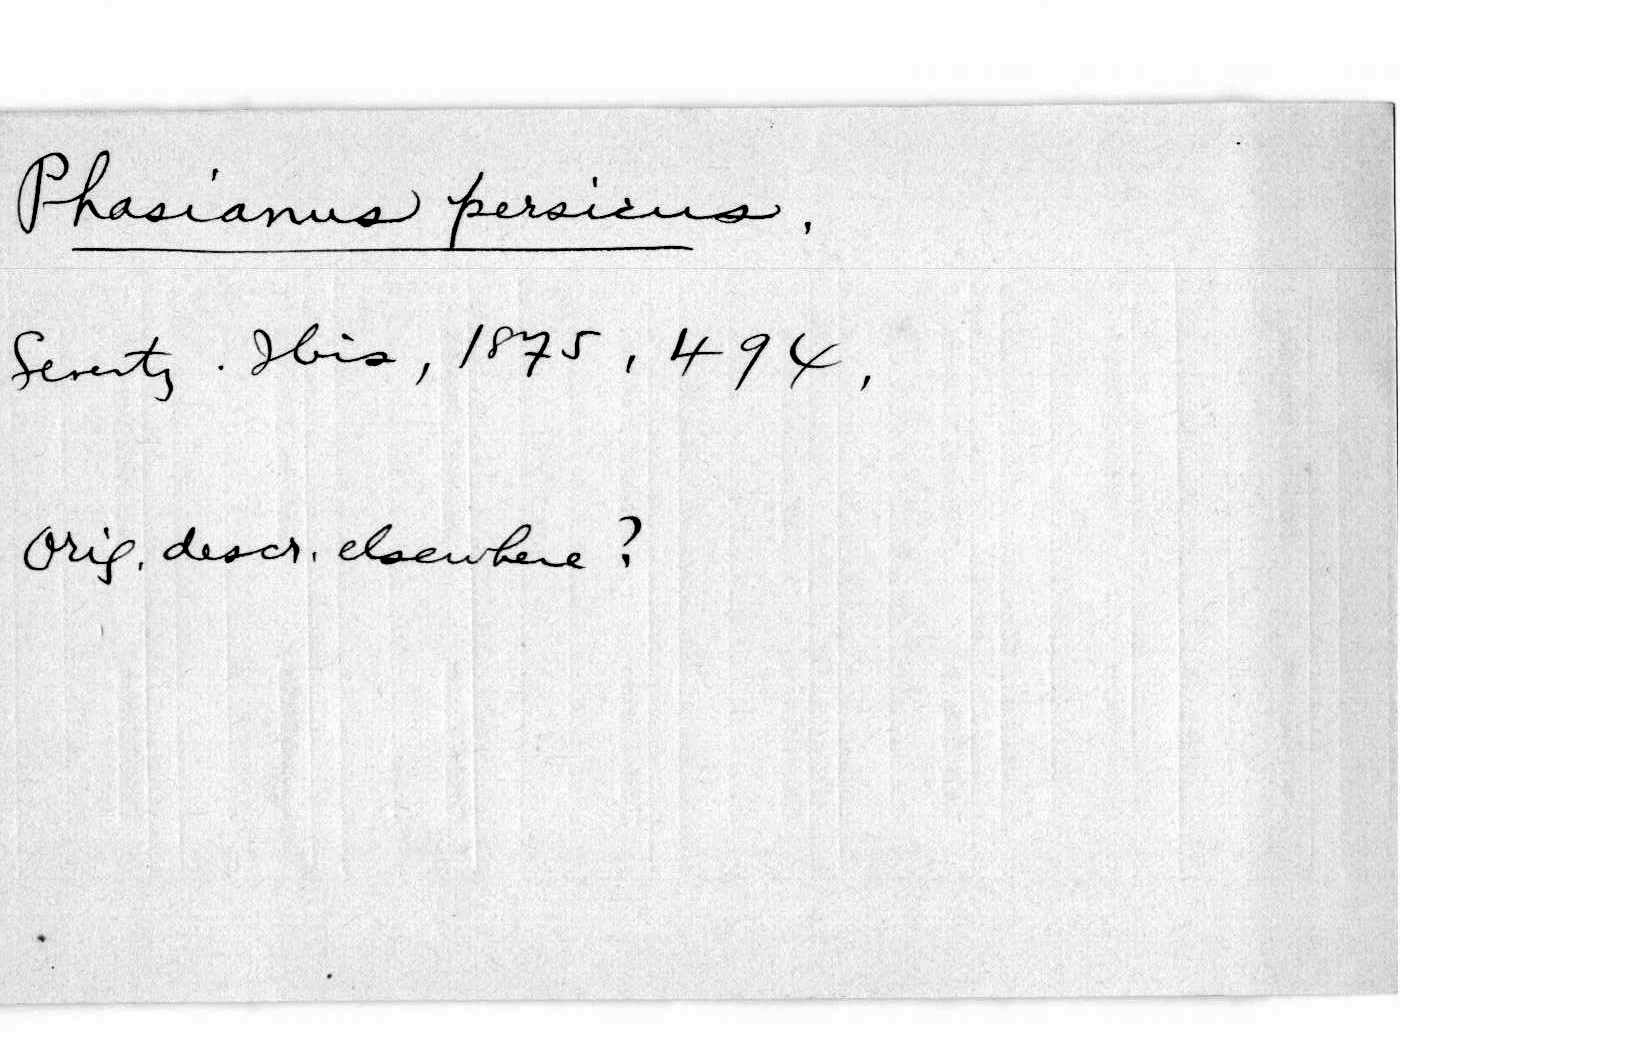 Phasianus persicus.
Severtz. Ibis, 1875, 494,
Orig. descr. elsewhere?